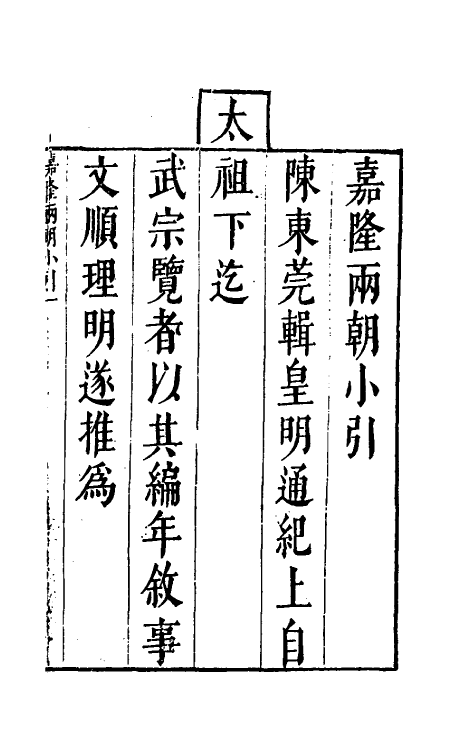 嘉隆兩朝小引
陳東莞輯皇明通紀上自
太祖下迄
武宗覽者以其編年敘事
文順理明遂推爲
嘉隆兩朝小引一